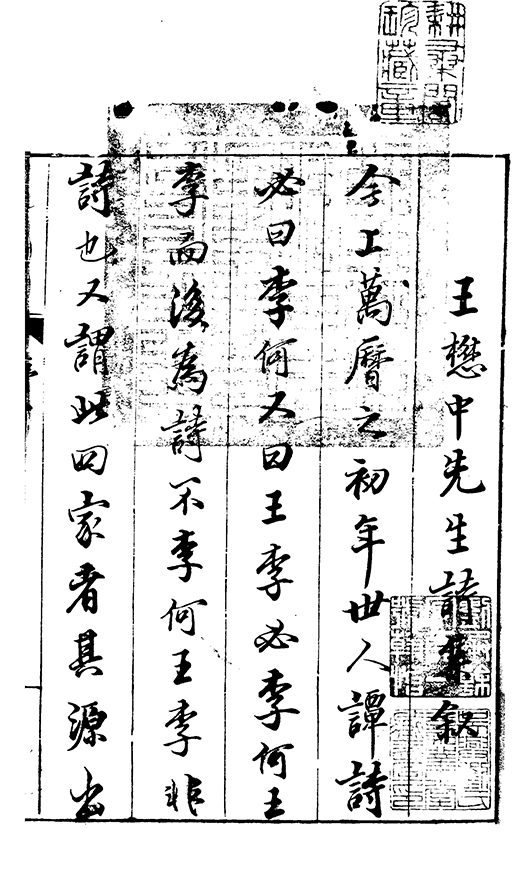 王懋中先生詩集敘
今上萬曆之初年世人譚詩
必曰李何又曰王李必李何王
李而後為詩不李何王李非
詩也又謂此四家者其源出